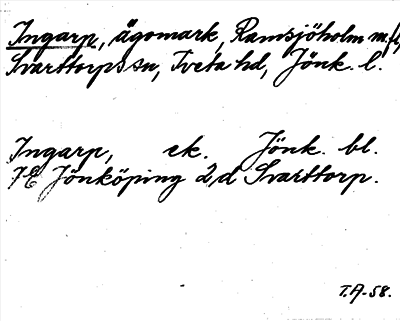 Ingarp, ägomark, Ramsjöholm m.fl.,
Svarttorps sn, Tveta hd, Jönk. l.
Ingarp, ek. Jönk. bl.
7E Jönköping 2,d Svarttorp.
T.A-58.